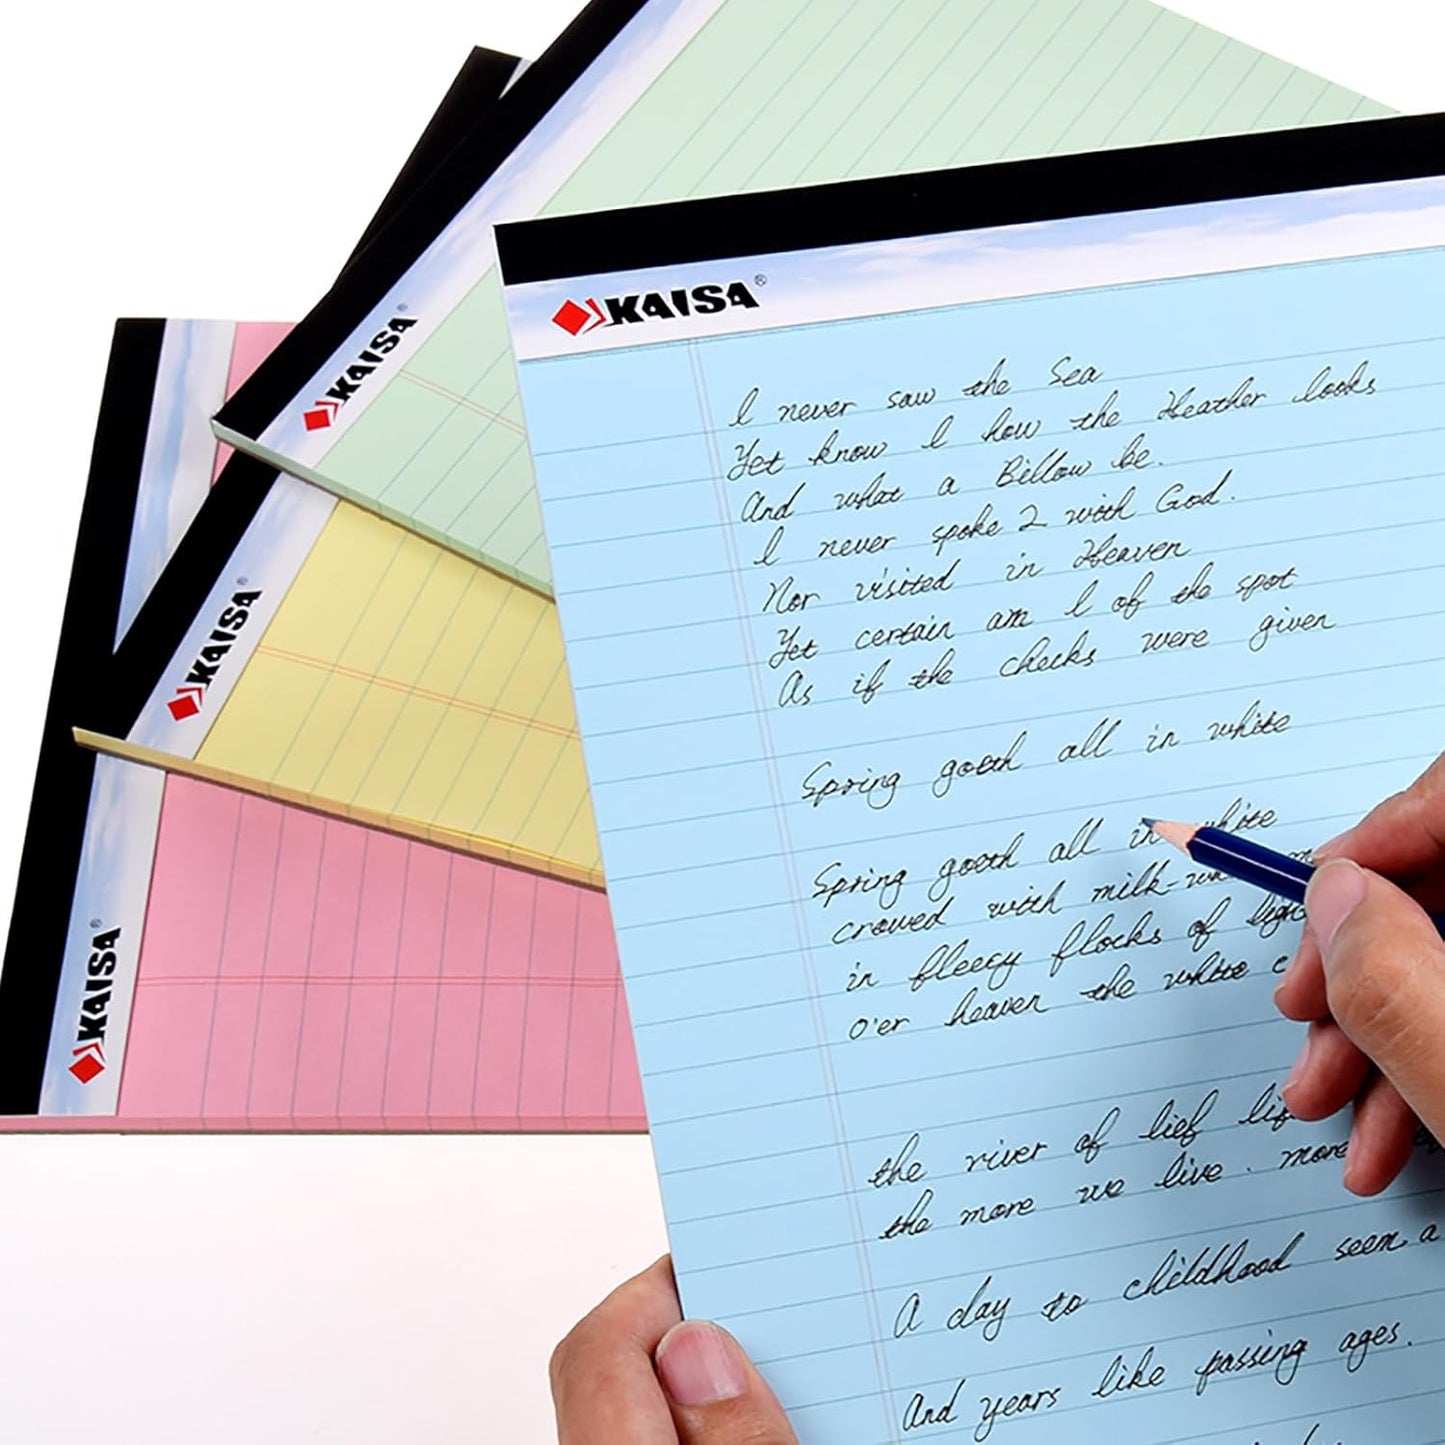 KAISA®
KAISA
KAISA®
KAISA®
I never saw the Sea
Yet know I how the Heather looks
And what a Billow be.
I never spoke 2 with God.
Nor visited in Heaven
Yet certain am I of the spot
As if the checks were given
Spring goeth all in white
Spring goeth all in white
crowed with milk-
in fleecy flocks of
o'er heaven the white c
the river of lief
the more we live. more
A day to childhood seem a
And years like passing ages.